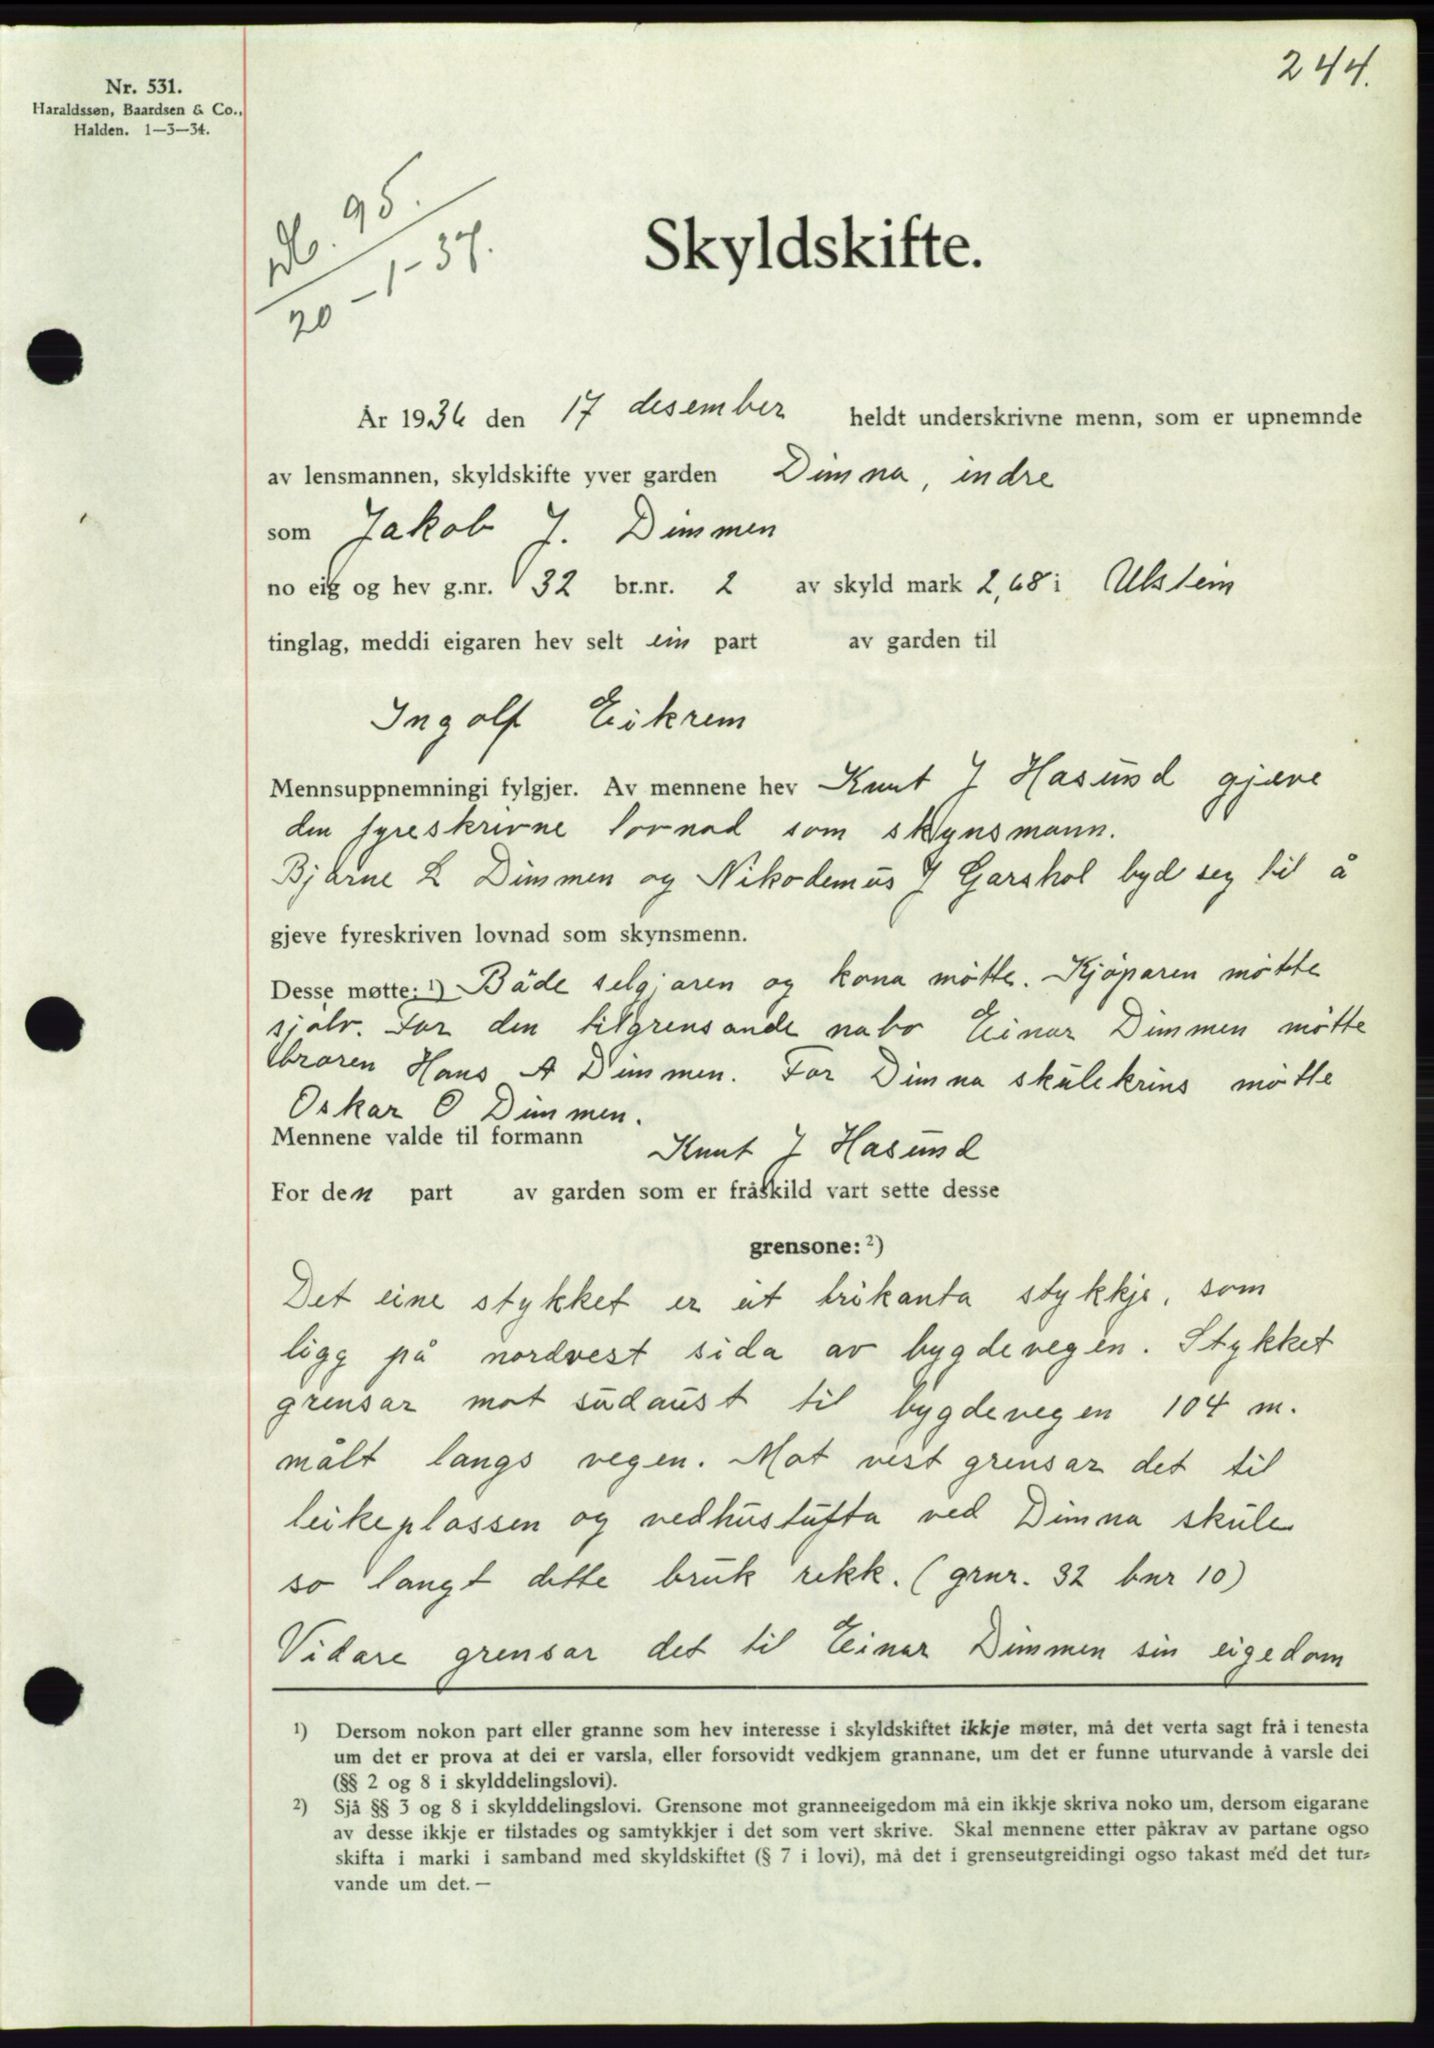 244.
Nr. 531.
Haraldssøn, Baardsen & Co.,
Halden. 1—3—34.
95.
20-1-37.
Skyldskifte.
År 1936 den 17 desember heldt underskrivne menn, som er upnemnde
av lensmannen, skyldskifte yver garden Dimna, indre
som Jakob J. Dimmen
no eig og hev g.nr. 32 br.nr. 2 av skyld mark 2,68 i Ulstein
tinglag, meddi eigaren hev selt ein part av garden til
Ingolf Eikrem
Mennsuppnemningi fylgjer. Av mennene hev Knut J Hasund gjeve
den fyreskrivne lovnad som skynsmann.
Bjarne L Dimmen og Nikodemus J Garshol byd seg til å
gjeve fyreskriven lovnad som skynsmenn.
Desse møtte: 1) Både seljaren og kona møtte. Kjøparen møtte
sjølv. For den tilgrensande nabo Einar Dimmen møtte
broren Hans A Dimmen. For Dimna skulekrins møtte
Oskar O Dimmen.
Mennene valde til formann Knut J Hasund
For den part av garden som er fråskild vart sette desse
grensone: 2)
Det eine stykket er eit trikanta stykkje, som
ligg på nordvest sida av bygdevegen. Stykket
grensar mot sudaust til bygdevegen 104 m.
målt langs vegen. Mot vest grensar det til
leikeplassen og vedhustufta ved Dimna skule
so langt dette bruk rekk. (grnr. 32 bnr 10)
Vidare grensar det til Einar Dimmen sin eigedom
1) Dersom nokon part eller granne som hev interesse i skyldskiftet ikkje møter, må det verta sagt frå i tenesta
um det er prova at dei er varsla, eller forsovidt vedkjem grannane, um det er funne uturvande å varsle dei
(§§ 2 og 8 i skylddelingslovi).
2) Sjå §§ 3 og 8 i skylddelingslovi. Grensone mot granneeigedom må ein ikkje skriva noko um, dersom eigarane
av desse ikkje er tilstades og samtykkjer i det som vert skrive. Skal mennene etter påkrav av partane ogso
skifta i marki i samband med skyldskiftet (§ 7 i lovi), må det i grenseutgreidingi ogso takast med det tur-
vande um det. —